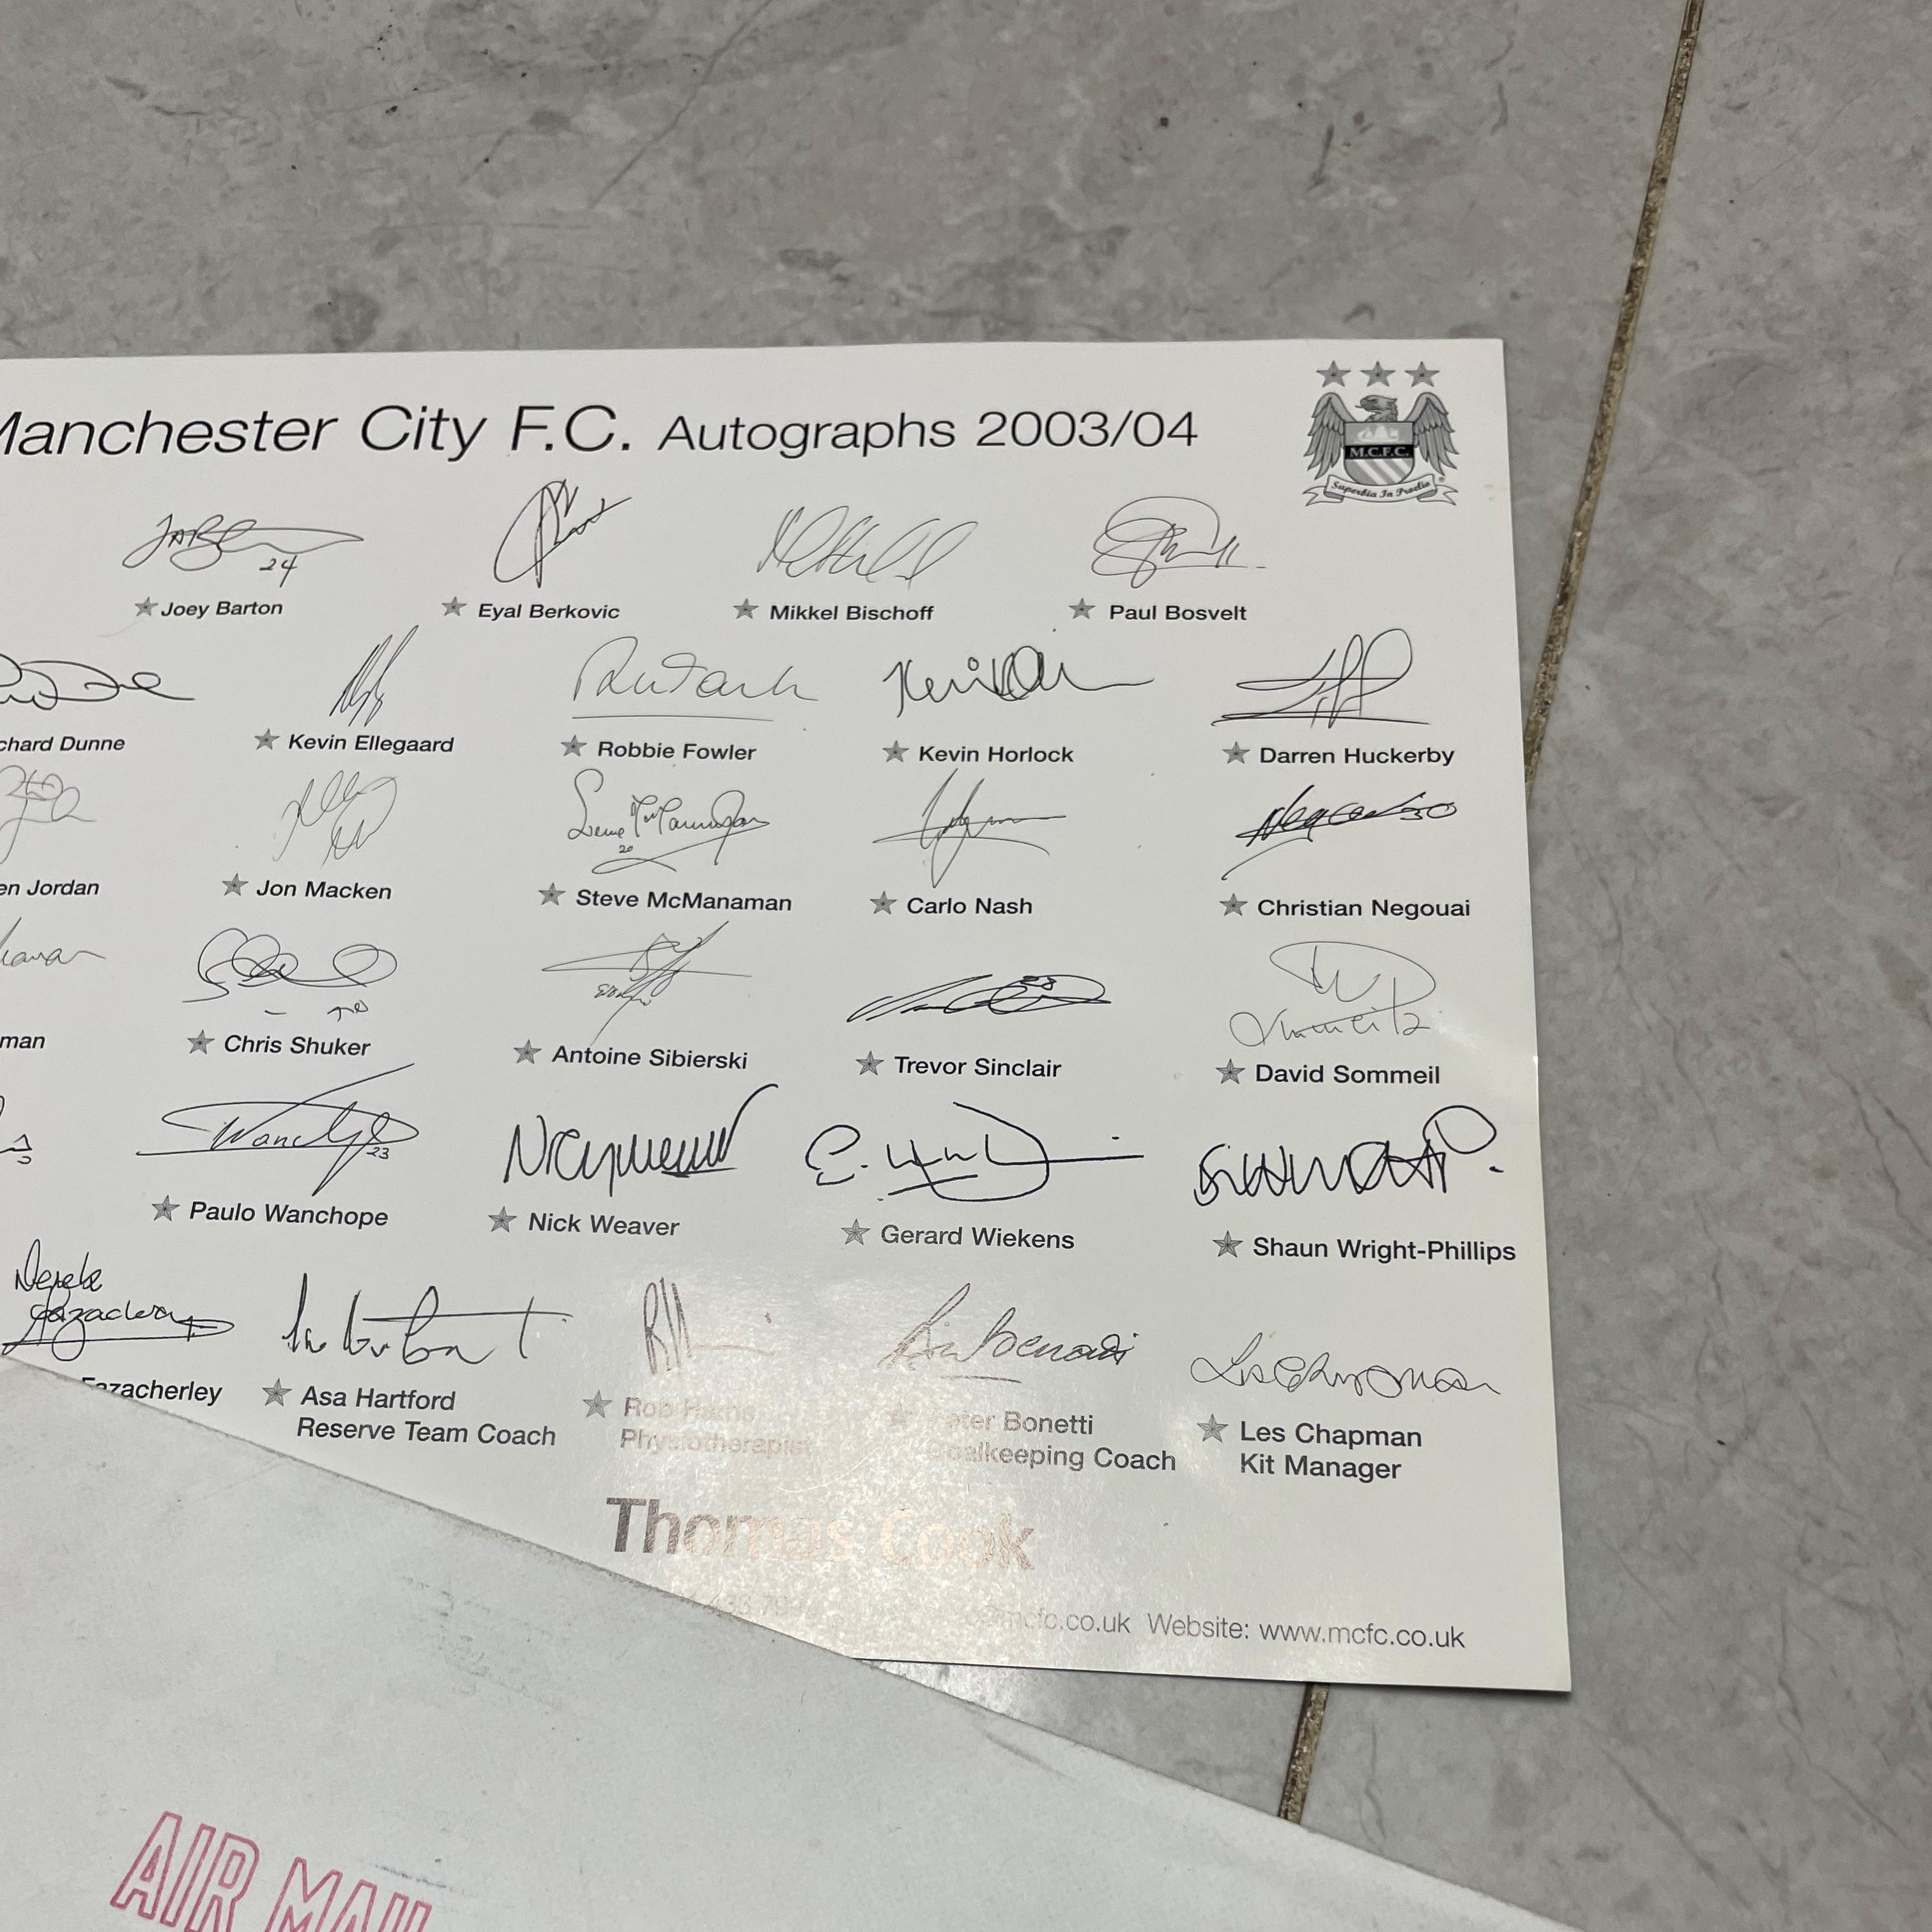 Manchester City F.C. Autographs 2003/04
M.C.F.C.
Superbia In Proelio
24
Joey Barton
Eyal Berkovic
Mikkel Bischoff
Paul Bosvelt
chard Dunne
Kevin Ellegaard
Robbie Fowler
Kevin Horlock
Darren Huckerby
en Jordan
Jon Macken
20
Steve McManaman
Carlo Nash
30
Christian Negouai
man
Chris Shuker
Antoine Sibierski
28
Trevor Sinclair
David Sommeil
23
Paulo Wanchope
Nick Weaver
Gerard Wiekens
Shaun Wright-Phillips
Derek
Fazackerley
Fazacherley
Asa Hartford
Reserve Team Coach
Rob Harris
Physiotherapist
Peter Bonetti
Goalkeeping Coach
Les Chapman
Kit Manager
Thomas Cook
@mcfc.co.uk Website: www.mcfc.co.uk
AIR MAIL